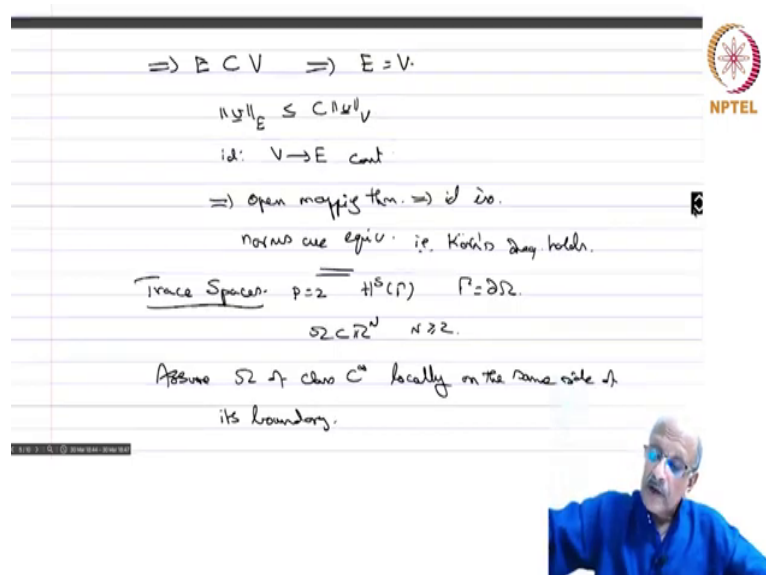 ⇒ E ⊂ V ⇒ E = V.
‖v‖_E ≤ C‖v‖_V
id: V → E cont
⇒ open mapping thm. ⇒ id iso.
norms are equiv. i.e. Korn's ineq. holds.
Trace Spaces. p=2 H^s(Γ) Γ=∂Ω.
Ω⊂ℝ^N N≥2.
Assume Ω of class C^∞ locally on the same side of
its boundary.
NPTEL